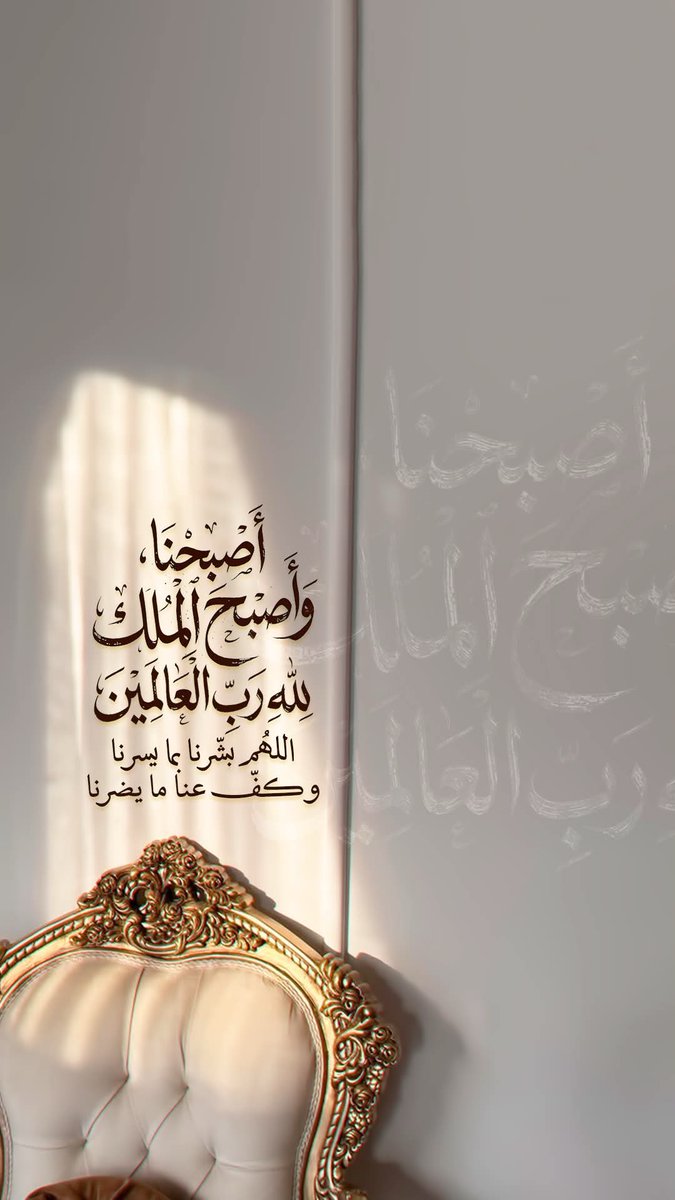 أَصْبَحْنَا،
وَأَصْبَحَ الْمُلْكُ
لِلَّهِ رَبِّ الْعَالَمِيْنَ
اللهُم بشّرنا بما يسرنا
وكفّ عنا ما يضرنا
أصبحنا
صبح الملك
رب العالمين